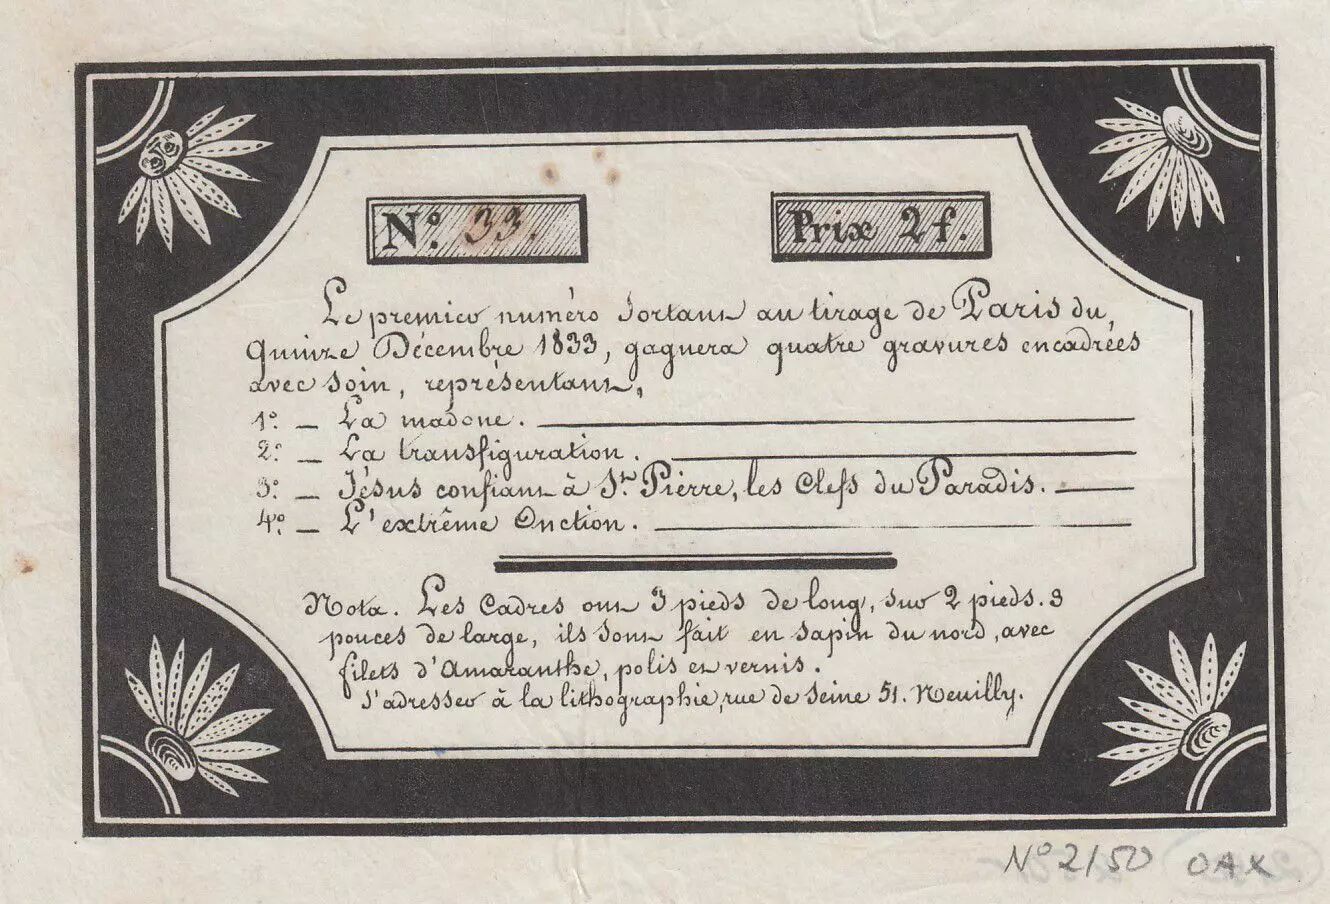 N.º 33.
Prix 2 f.
Le premier numéro Sortant au tirage de Paris du,
Quinze Décembre 1833, gagnera quatre gravures encadrées
avec soin, représentant,
1.º — La madone.
2.º — La transfiguration.
3.º — Jésus confiant à St. Pierre, les Clefs du Paradis.
4.º — L'extrême Onction.
Nota. Les Cadres ont 3 pieds de long, sur 2 pieds. 3
pouces de large, ils sont fait en sapin du nord, avec
filets d'Amaranthe, polis et vernis.
S'adresser à la lithographie, rue de Seine 51. Neuilly.
Nº 2150 OAX